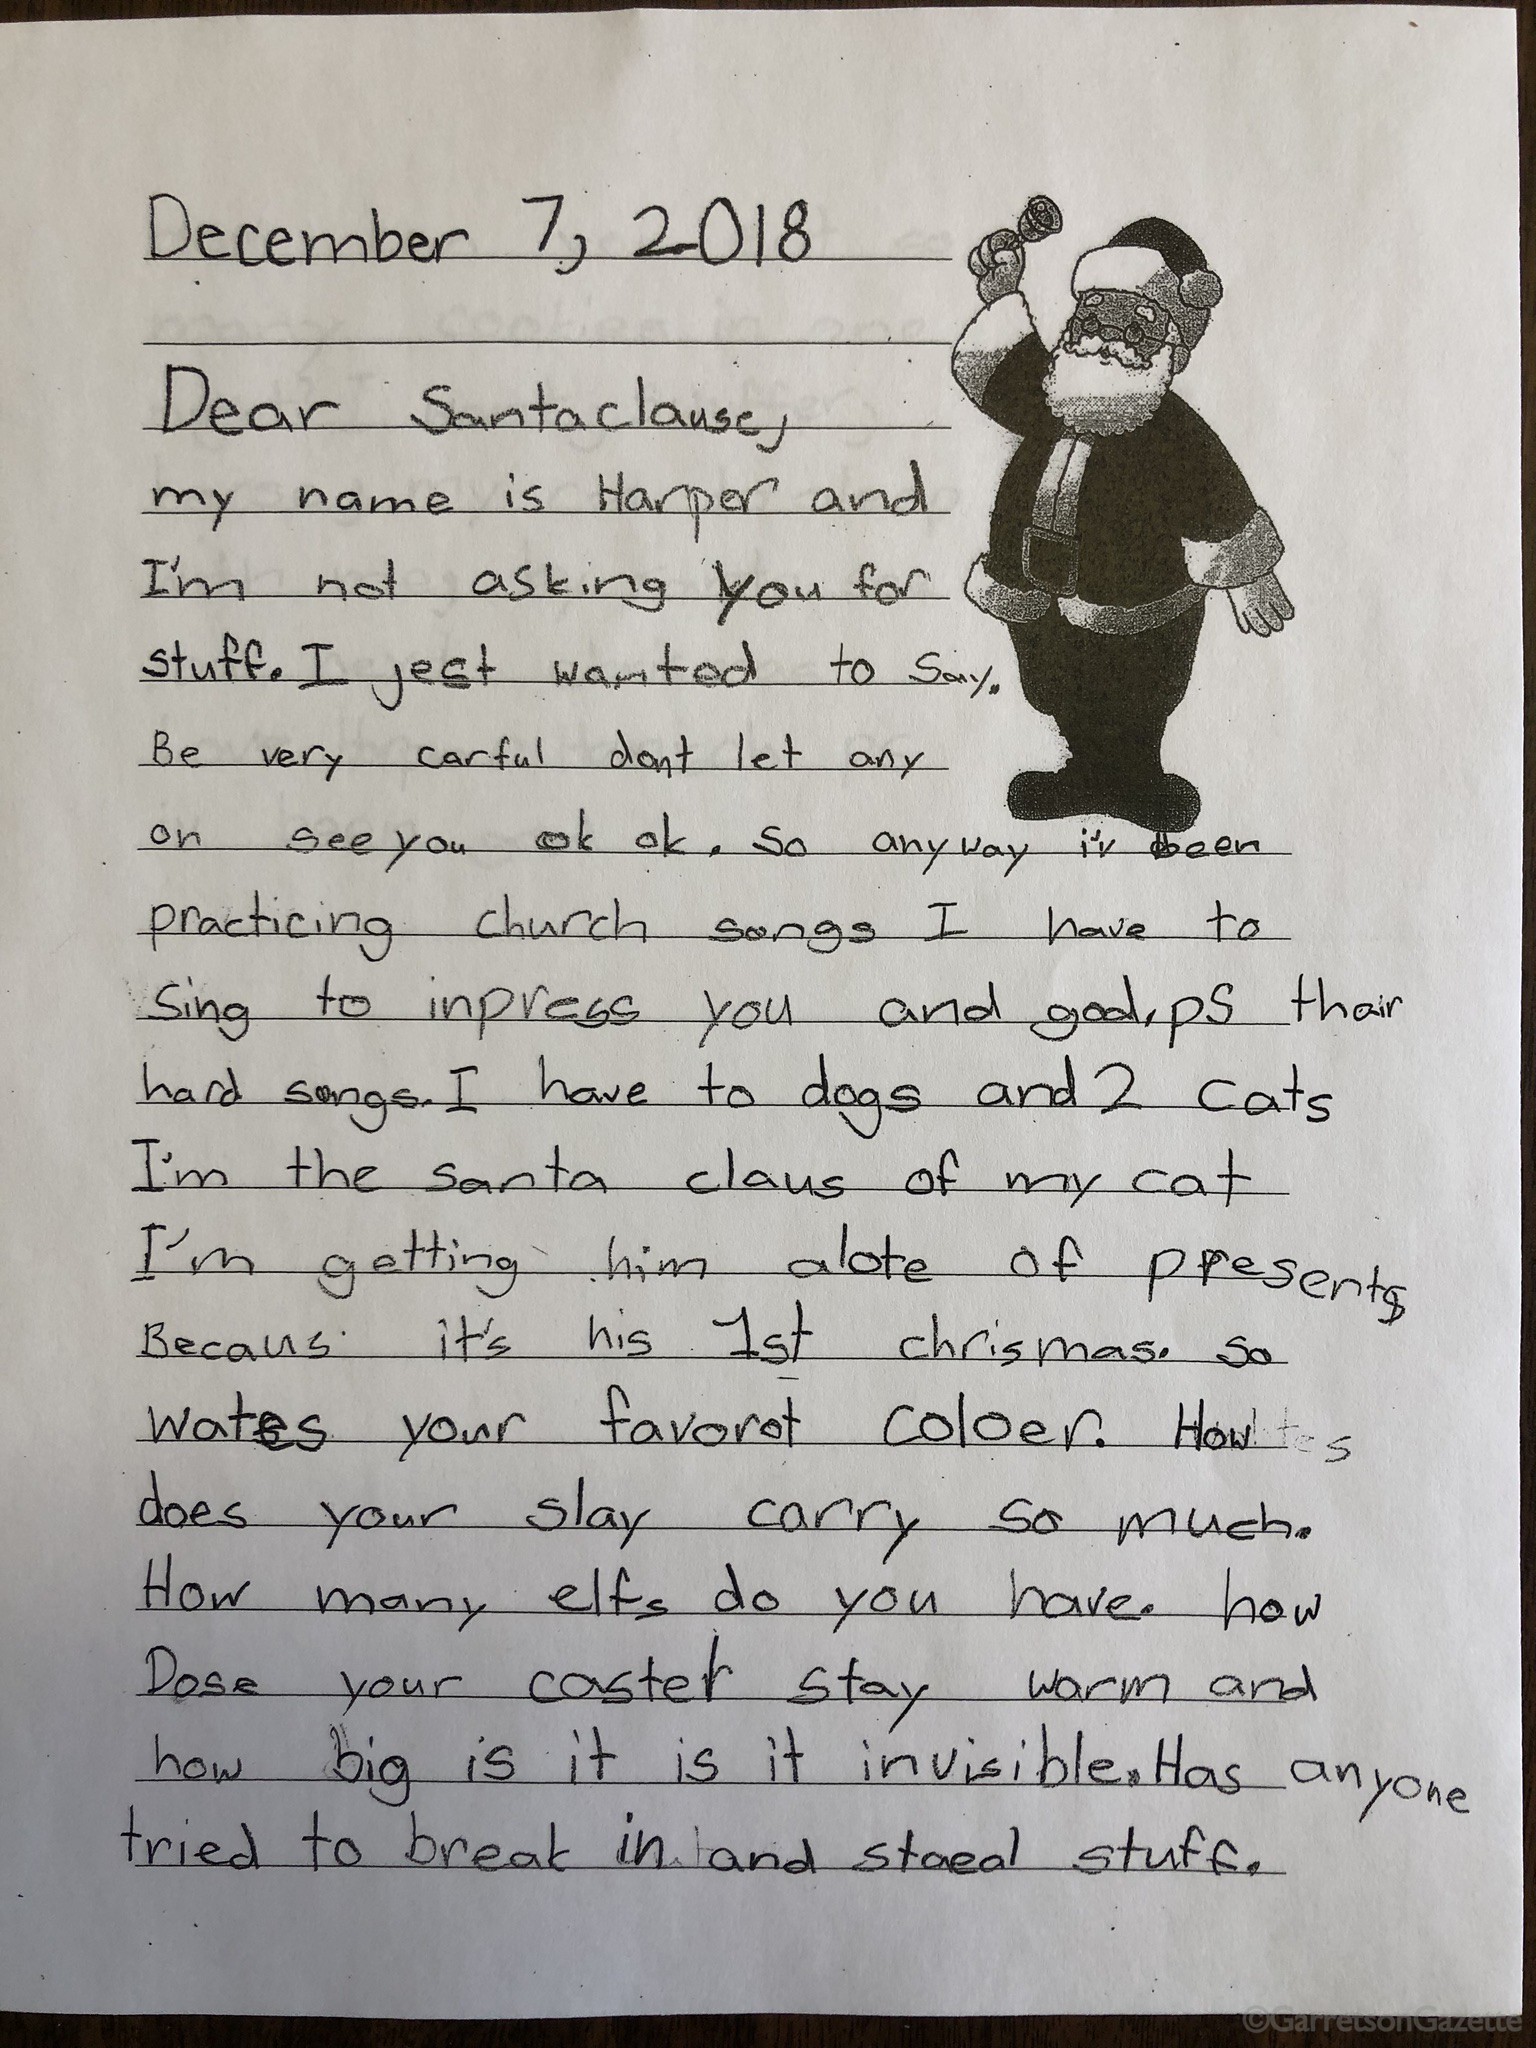 December 7, 2018
Dear Santaclause,
my name is Harper and
I'm not asking you for
stuff. I jest wanted to say.
Be very carful dont let any
on see you ok ok. So anyway i'v been
practicing church songs I have to
sing to inpress you and god, ps thair
hard songs. I have to dogs and 2 cats
I'm the santa claus of my cat
I'm getting him alote of presents
Becaus it's his 1st chrismas. so
wates your favorot coloer. How
does your slay carry so much.
How many elfs do you have. how
Dose your castel stay warm and
how big is it is it invisible. Has anyone
tried to break in and staeal stuff.
©GarretsonGazette